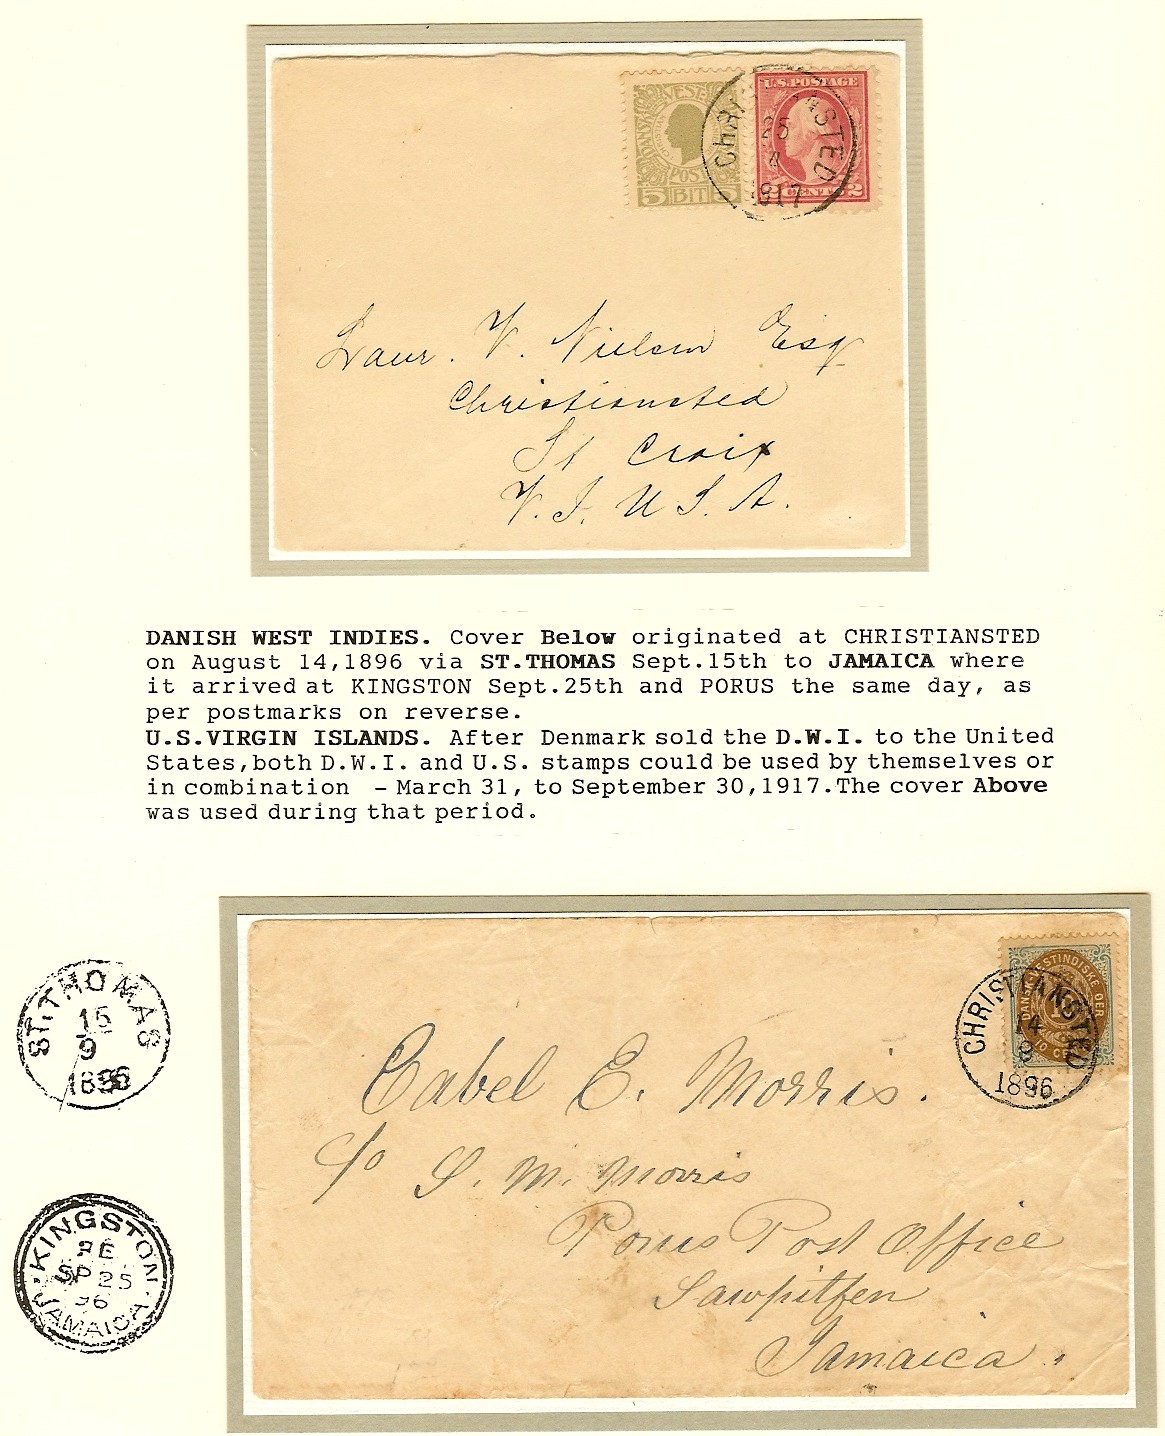 VEST-
DANSK
POST
5 BIT 5
U.S. POSTAGE
2 CENTS 2
CHRISTIANSTED
25
4
1917
Laur. V. Nielsen Esq
Christiansted
St Croix
V. I. U. S. A.
DANISH WEST INDIES. Cover Below originated at CHRISTIANSTED
on August 14,1896 via ST.THOMAS Sept.15th to JAMAICA where
it arrived at KINGSTON Sept.25th and PORUS the same day, as
per postmarks on reverse.
U.S.VIRGIN ISLANDS. After Denmark sold the D.W.I. to the United
States,both D.W.I. and U.S. stamps could be used by themselves or
in combination - March 31, to September 30,1917.The cover Above
was used during that period.
DANSK VESTINDISKE OER
10 CENTS
CHRISTIANSTED
14
8
1896
ST. THOMAS
15
9
1896
Cabel E. Morris.
c/o S. M. Morris
Porus Post Office
Sawpitfen
Jamaica.
KINGSTON
SP 25
96
JAMAICA